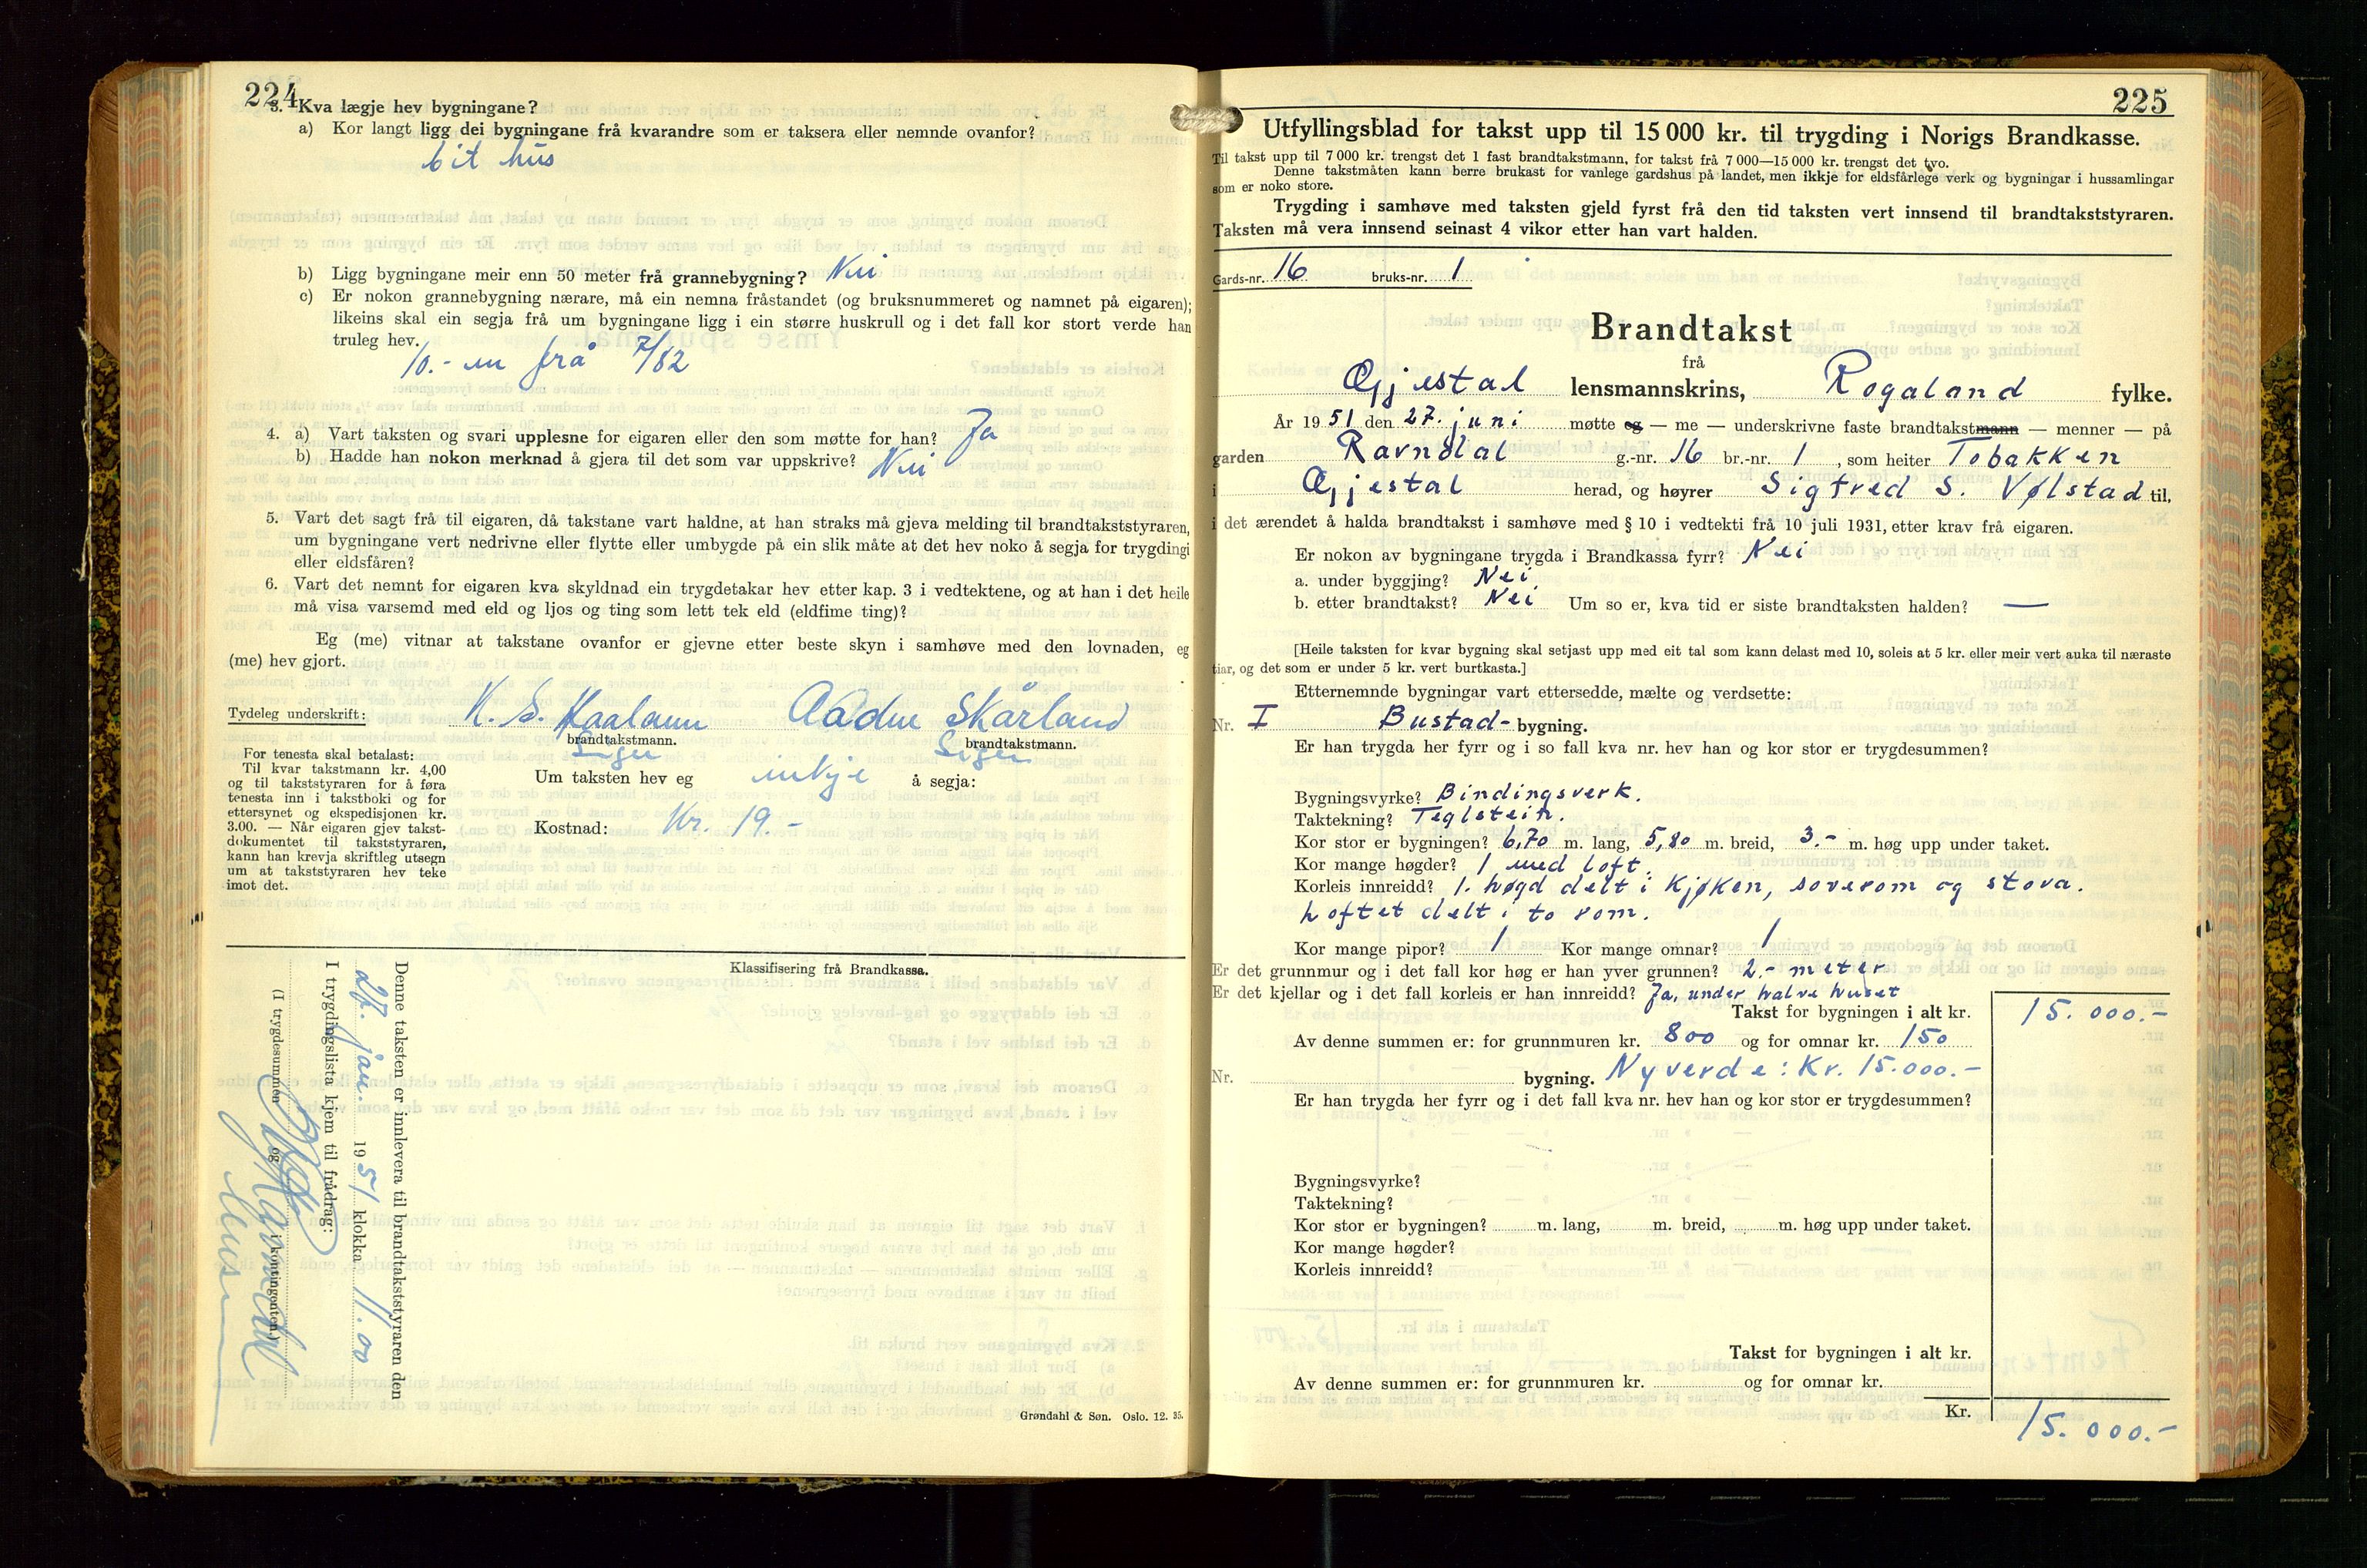 224
3. Kva lægje hev bygningane?
a) Kor langt ligg dei bygningane frå kvarandre som er taksera eller nemnde ovanfor?
Eit hus
b) Ligg bygningane meir enn 50 meter frå grannebygning? Nei
c) Er nokon grannebygning nærare, må ein nemna fråstandet (og bruksnummeret og namnet på eigaren);
likeins skal ein segja frå um bygningane ligg i ein større huskrull og i det fall kor stort verde han
truleg hev.
10.- m frå 7/82
4. a) Vart taksten og svari upplesne for eigaren eller den som møtte for han? Ja
b) Hadde han nokon merknad å gjera til det som var uppskrive? Nei
5. Vart det sagt frå til eigaren, då takstane vart haldne, at han straks må gjeva melding til brandtakststyraren,
um bygningane vert nedrivne eller flytte eller umbygde på ein slik måte at det hev noko å segja for trygdingi
eller eldsfåren?
6. Vart det nemnt for eigaren kva skyldnad ein trygdetakar hev etter kap. 3 i vedtektene, og at han i det heile
må visa varsemd med eld og ljos og ting som lett tek eld (eldfime ting)?
Eg (me) vitnar at takstane ovanfor er gjevne etter beste skyn i samhøve med den lovnaden, eg
(me) hev gjort.
Tydeleg underskrift: Aadne Skårland
brandtakstmann. brandtakstmann.
For tenesta skal betalast:
Til kvar takstmann kr. 4,00
og til takststyraren for å føra
tenesta inn i takstboki og for
ettersynet og ekspedisjonen kr.
3.00. — Når eigaren gjev takst-
dokumentet til takststyraren,
kann han krevja skriftleg utsegn
um at takststyraren hev teke
imot det.
Um taksten hev eg inkje å segja:
Kostnad: Kr. 19.-
Klassifisering frå Brandkassa.
Denne taksten er innlevera til brandtakststyraren den
27. jan. 1951 klokka 11.00
I trygdingslista kjem til frådrag:
(I trygdesummen og i kontingenten.)
Grøndahl & Søn. Oslo. 12. 35.
225
Utfyllingsblad for takst upp til 15 000 kr. til trygding i Norigs Brandkasse.
Til takst upp til 7 000 kr. trengst det 1 fast brandtakstmann, for takst frå 7 000—15 000 kr. trengst det tvo.
Denne takstmåten kann berre brukast for vanlege gardshus på landet, men ikkje for eldsfårlege verk og bygningar i hussamlingar
som er noko store.
Trygding i samhøve med taksten gjeld fyrst frå den tid taksten vert innsend til brandtakststyraren.
Taksten må vera innsend seinast 4 vikor etter han vart halden.
Gards-nr. 16 bruks-nr. 1
Brandtakst
frå
Gjestal lensmannskrins, Rogaland fylke.
År 1951 den 27. juni møtte og — me — underskrivne faste brandtakstmann — menner — på
garden Ravndal g.-nr. 16 br.-nr. 1, som heiter Tobakken
i Gjestal herad, og høyrer Sigfred S. Vølstad til,
i det ærendet å halda brandtakst i samhøve med § 10 i vedtekti frå 10 juli 1931, etter krav frå eigaren.
Er nokon av bygningane trygda i Brandkassa fyrr? Nei
a. under byggjing? Nei
b. etter brandtakst? Nei Um so er, kva tid er siste brandtaksten halden? —
[Heile taksten for kvar bygning skal setjast upp med eit tal som kann delast med 10, soleis at 5 kr. eller meir vert auka til næraste
tiar, og det som er under 5 kr. vert burtkasta.]
Etternemnde bygningar vart ettersedde, mælte og verdsette:
Nr. I Bustad- bygning.
Er han trygda her fyrr og i so fall kva nr. hev han og kor stor er trygdesummen?
Bygningsvyrke? Bindingsverk.
Taktekning? Teglstein.
Kor stor er bygningen? 6,70 m. lang, 5,80 m. breid, 3.- m. høg upp under taket.
Kor mange høgder? 1 med loft.
Korleis innreidd? 1. høgd delt i kjøken, soverom og stova.
Loftet delt i to rom.
Kor mange pipor? 1 Kor mange omnar? 1
Er det grunnmur og i det fall kor høg er han yver grunnen? 2.- meter
Er det kjellar og i det fall korleis er han innreidd? Ja, under halve huset
Takst for bygningen i alt kr. 15.000.-
Av denne summen er: for grunnmuren kr. 800 og for omnar kr. 150
Nr. bygning. Nyverde: Kr. 15.000.-
Er han trygda her fyrr og i det fall kva nr. hev han og kor stor er trygdesummen?
Bygningsvyrke?
Taktekning?
Kor stor er bygningen? m. lang, m. breid, m. høg upp under taket.
Kor mange høgder?
Korleis innreidd?
Takst for bygningen i alt kr.
Av denne summen er: for grunnmuren kr. og for omnar kr.
Kr. 15.000.-